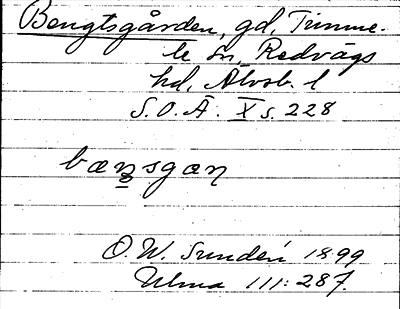 Bengtsgården, gd, Timme-
le sn, Redvägs
hd, Älvsb. l
S.O.Ä. X s. 228
bæn̥sgan
O.W. Sundén 1899
Ulma 111:287.